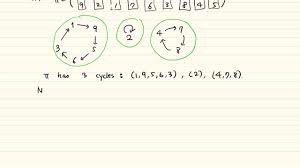 9 2 1 7 6 3 8 4 5
1 9
3 5
6
2
4 7
8
π has 3 cycles : (1,9,5,6,3) , (2), (4,7,8)
N